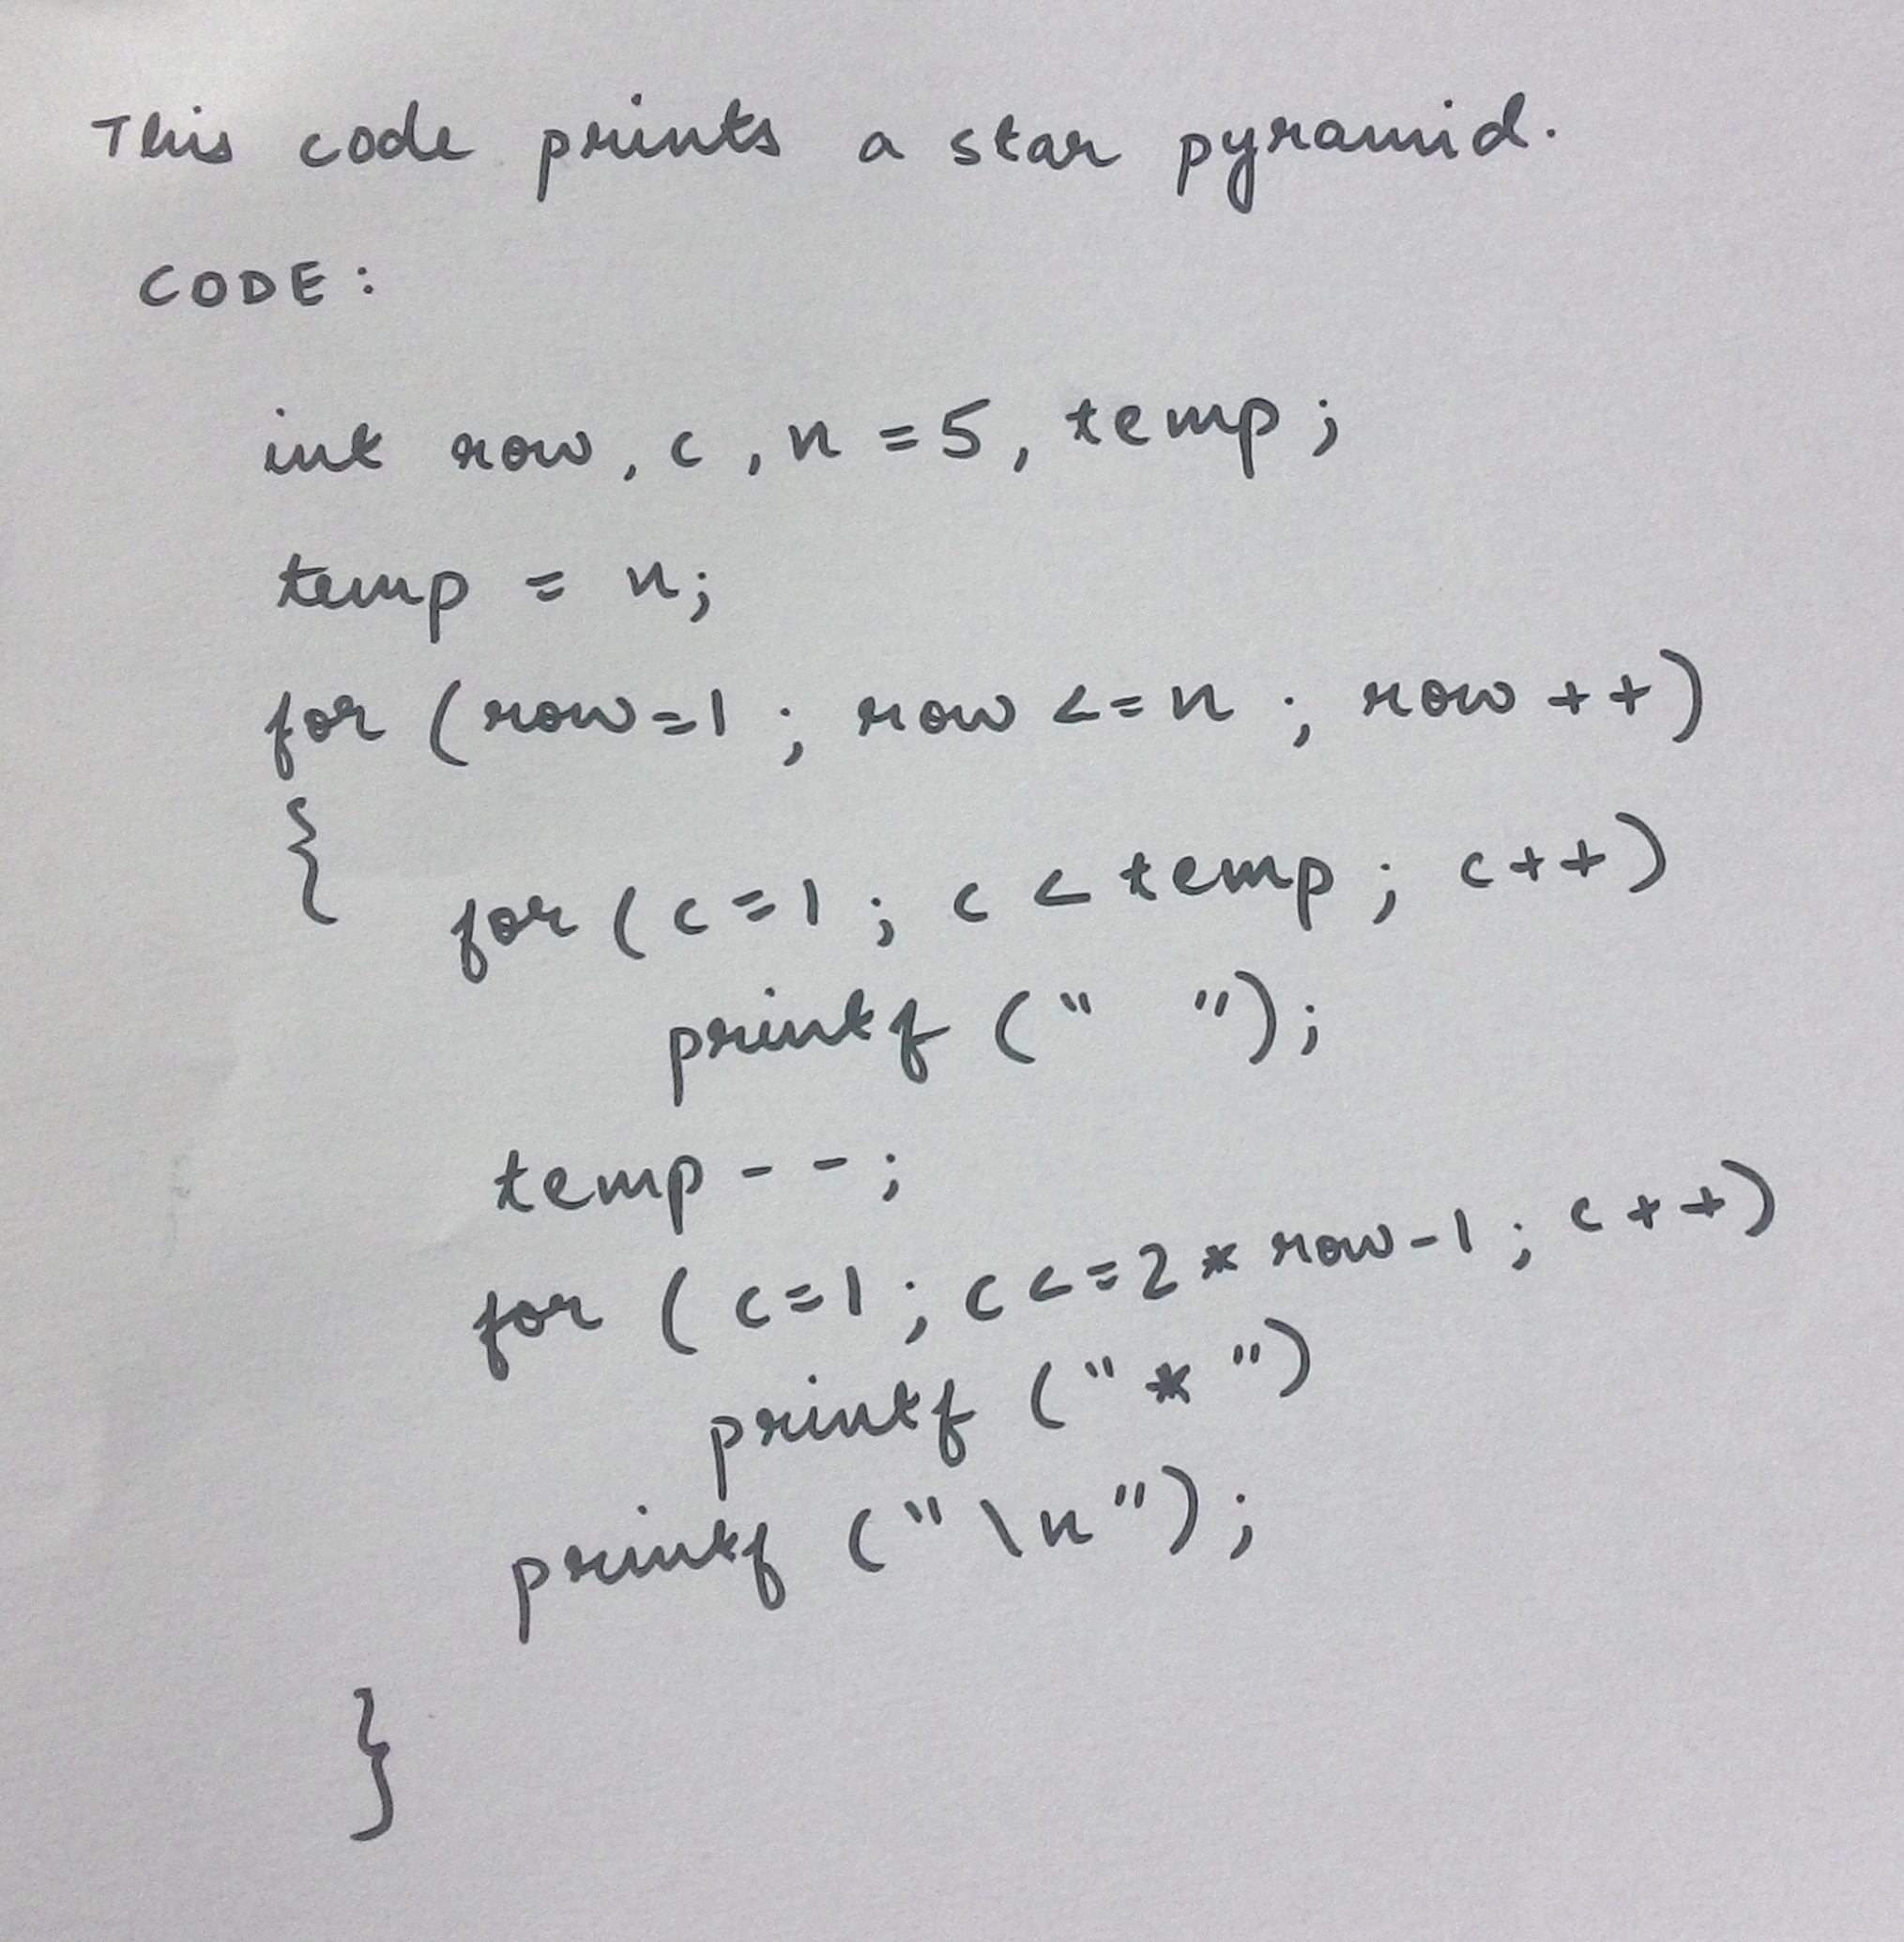 This code prints a star pyramid.
CODE:
int row, c, n = 5, temp;
temp = n;
for (row=1 ; row <=n ; row ++)
{ for ( c=1 ; c < temp ; c++)
printf (" ");
temp - - ;
for ( c=1 ; c <=2 * row-1 ; c++)
printf ("*")
printf ("\n");
}